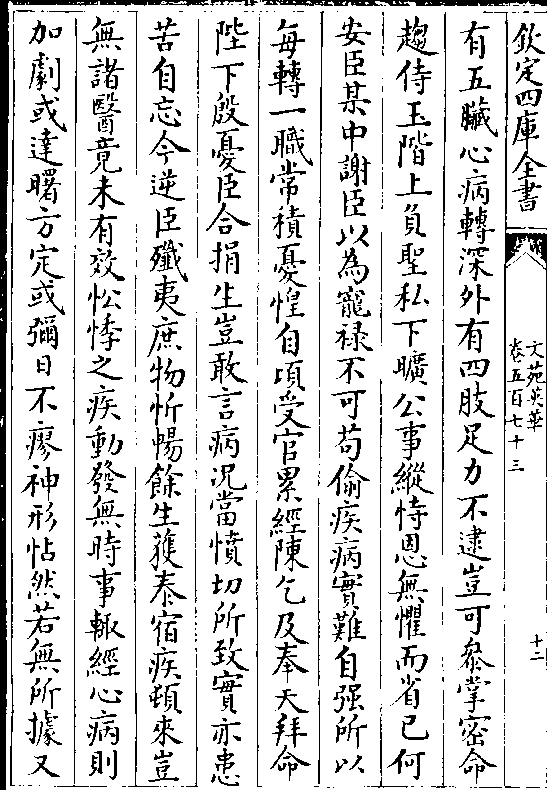 欽定四庫全書
文苑英華
卷五百七十三
十二
有五臟心病轉深外有四肢足力不逮豈可叅掌密命
趨侍玉階上負聖私下曠公事縱恃恩無懼而省已何
安臣某中謝臣以為寵禄不可苟偷疾病實難自强所以
每轉一職常積憂惶自頃受官累經陳乞及奉天拜命
陛下殷憂臣合捐生豈敢言病況當憤切所致實亦患
苦自忘今逆臣殱夷庶物忻暢餘生獲泰宿疾頓來豈
無諸醫竟未有效忪悸之疾動發無時事輒經心病則
加劇或達曙方定或彌日不瘳神形怗然若無所據又